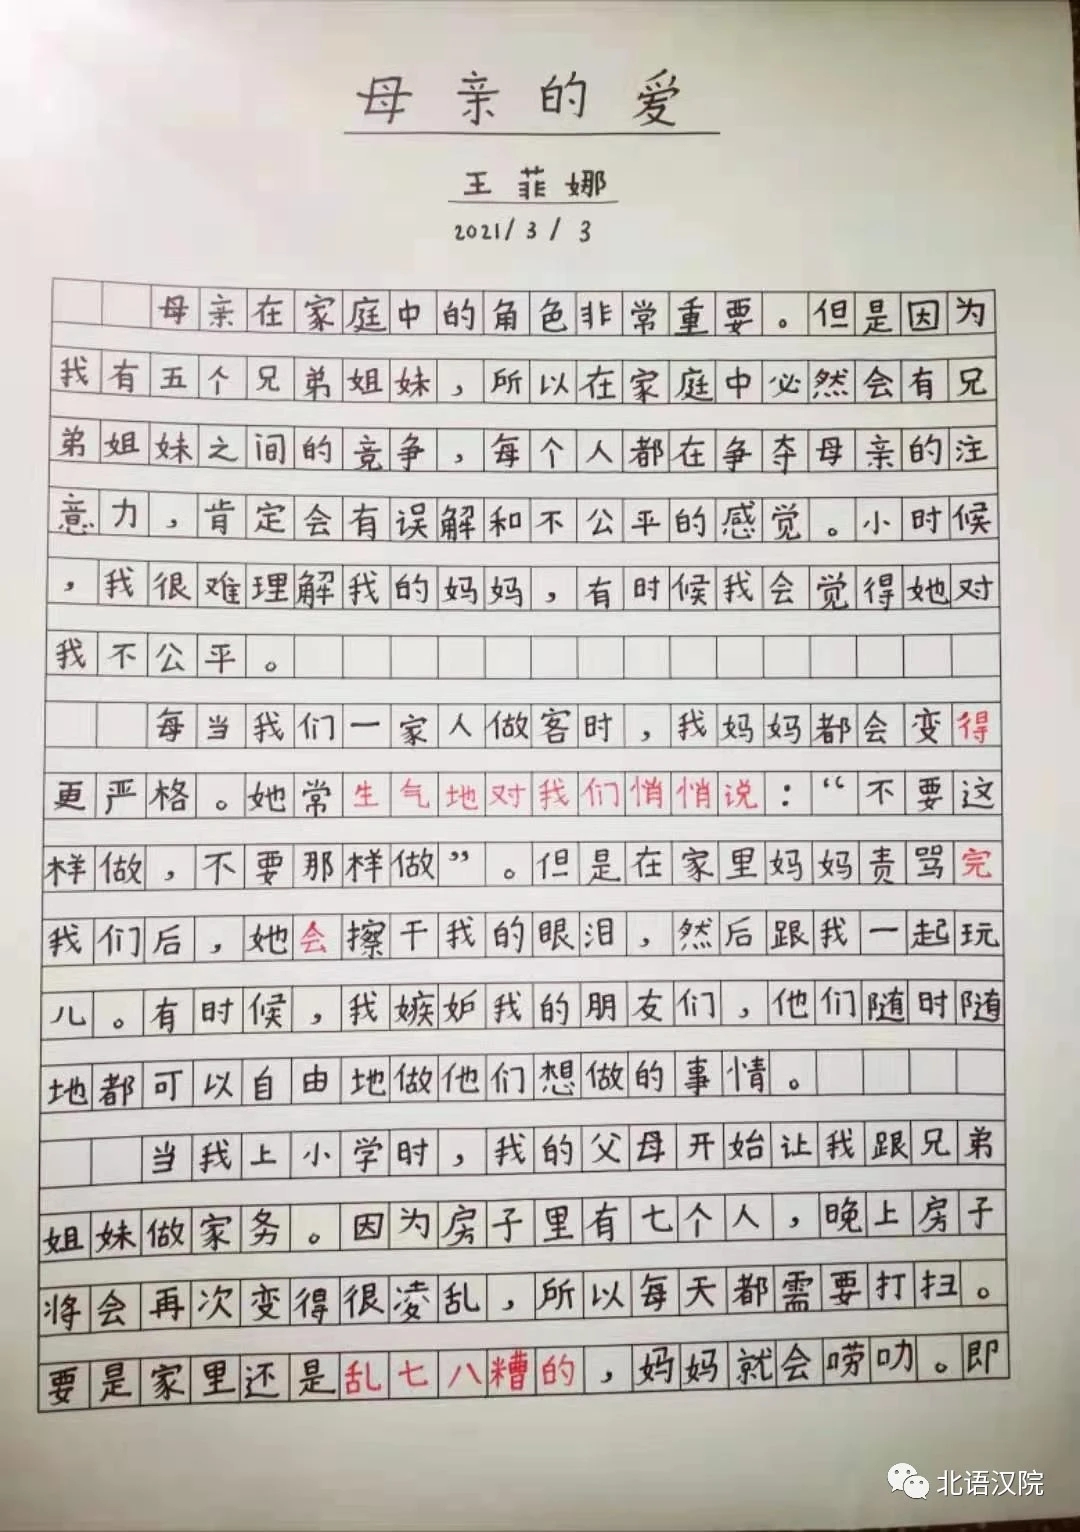 母亲的爱
王菲娜
2021/3/3
母亲在家庭中的角色非常重要。但是因为
我有五个兄弟姐妹，所以在家庭中必然会有兄
弟姐妹之间的竞争，每个人都在争夺母亲的注
意力，肯定会有误解和不公平的感觉。小时候
，我很难理解我的妈妈，有时候我会觉得她对
我不公平。
每当我们一家人做客时，我妈妈都会变得
更严格。她常生气地对我们悄悄说：“不要这
样做，不要那样做”。但是在家里妈妈责骂完
我们后，她会擦干我的眼泪，然后跟我一起玩
儿。有时候，我嫉妒我的朋友们，他们随时随
地都可以自由地做他们想做的事情。
当我上小学时，我的父母开始让我跟兄弟
姐妹做家务。因为房子里有七个人，晚上房子
将会再次变得很凌乱，所以每天都需要打扫。
要是家里还是乱七八糟的，妈妈就会唠叨。即
北语汉院